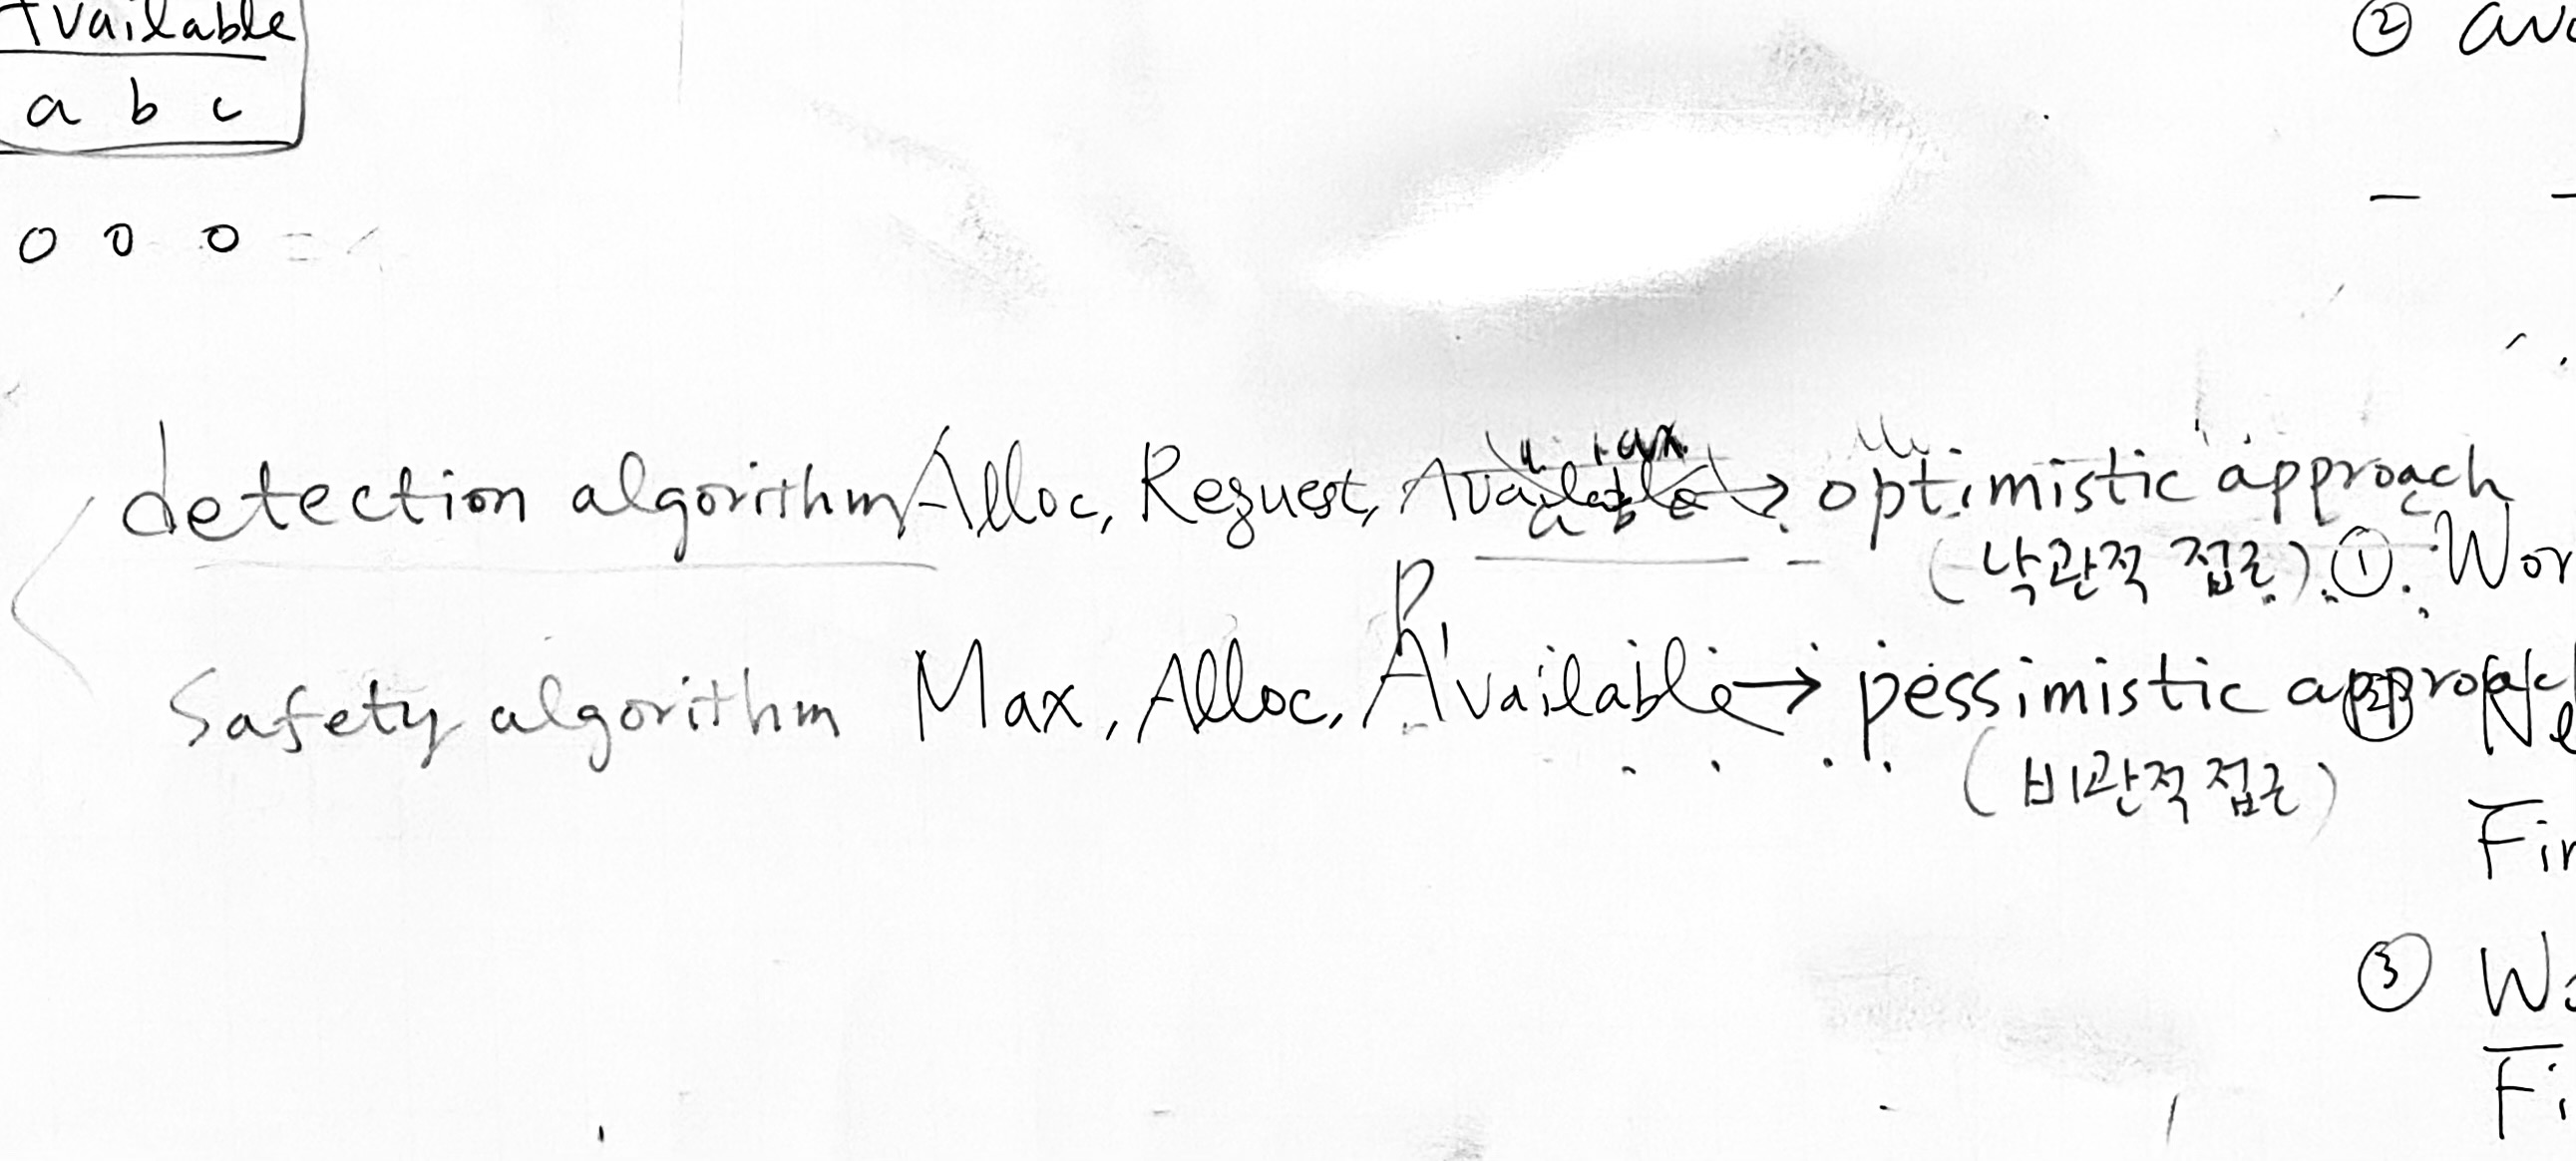 Available
a b c
0 0 0
②
detection algorithm Alloc, Request, Available → optimistic approach
(낙관적 접근) ①
Safety algorithm Max, Alloc, Available → pessimistic approach
(비관적 접근)
③